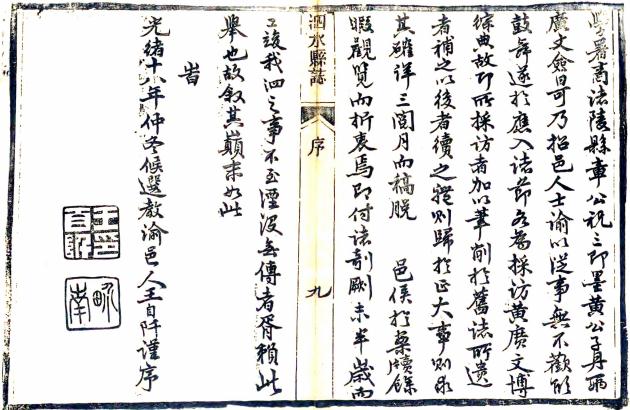 學署商諸陵縣章公祝三即墨黃公子丹兩
廣文僉曰可乃招邑人士諭以從事無不歡欣
鼓舞遂於應入諸節各為採訪黃廣文博
綜典故即所採訪者加以筆削於舊誌所遺
者補之以後者續之體則歸於正大事則求
其確詳三閱月而稿脫 邑侯於案牘餘
暇觀覽而折衷焉即付諸剞劂未半歲而
泗水縣誌
序
九
工竣我泗之事不至湮沒無傳者胥賴此
舉也故叙其巔末如此
旹
光緒十八年仲冬候選教諭邑人王自阡謹序